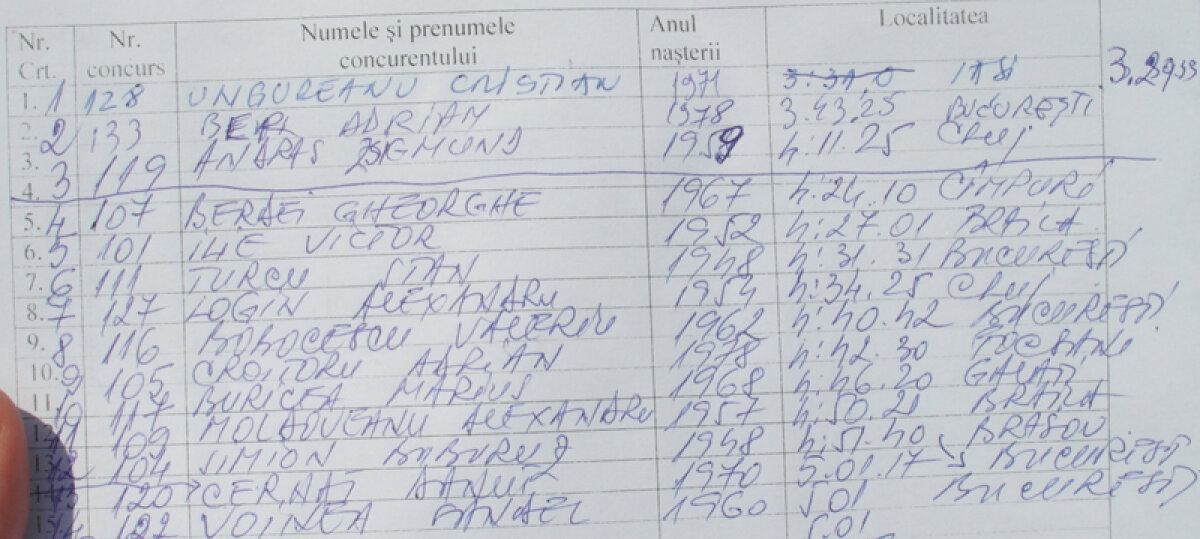 Nr. Crt. Nr. concurs Numele și prenumele concurentului Anul nașterii Localitatea
1. 1 128 UNGUREANU CRISTIAN 1971 3:31.0 IASI
2. 2 133 ADRIAN 1978 3.43.25 BUCUREȘTI
3. 3 119 ZSIGMOND 1959 h:11.25 Cluj
4. 4 107 GHEORGHE 1967 h:24.10 CÎMPURI
5. 5 101 ILIE VICTOR 1952 h:27.01
6. 6 111 TURCU STAN 1948 h:31.31 BUCUREȘTI
7. 7 127 LOGIN ALEXANDRU 1954 h:34.25 Cluj
8. 8 116 BOBOCESCU VALERIU 1962 h:40.42 BUCUREȘTI
9. 9 105 CROITORU ADRIAN 1978 h:42.30 FOCSANI
10. 117 BURICEA MARIUS 1968 h:46.20 GALAȚI
11. 109 MOLDOVEANU ALEXANDRU 1957 h:50.21 BRAILA
12 104 SIMION 1948 h:51.40 BRASOV
120 DANUT 1970 5.01.17 BUCUREȘTI
15. 122 VOINEA 1960 5.01 BUCUREȘTI
5.01